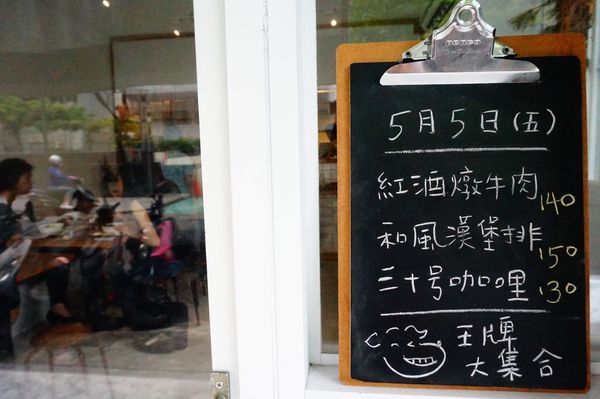 5月5日(五)
紅酒燉牛肉 140
和風漢堡排 150
三十号咖哩 130
王牌
大集合